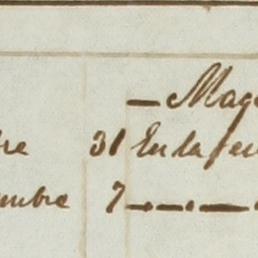 — Mag
re 31 En la fe
mbre 7 — . — . —